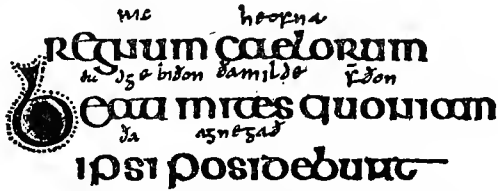 ric heofna
regnum caelorum
biðon ðamilde f̄ðon
Beati mites quoniam
ða agnegað
ipsi posidebunt